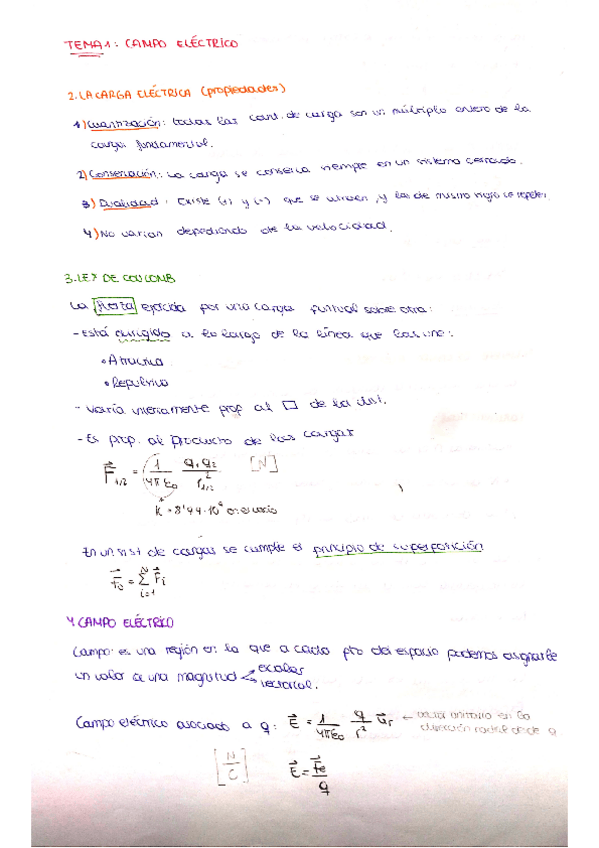 TEMA 1: CAMPO ELÉCTRICO
2. LA CARGA ELÉCTRICA (propiedades)
1) Cuantización: todas las cant. de carga son un múltiplo entero de la
carga fundamental.
2) Conservación: La carga se conserva siempre en un sistema cerrado.
3) Dualidad: Existe (+) y (-) que se atraen, y las de mismo signo se repelen.
4) No varían dependiendo de la velocidad.
3. LEY DE COULOMB
La fuerza ejercida por una carga puntual sobre otra:
- Está dirigido a lo largo de la línea que las une:
• Atractiva
• Repulsiva
- Varía inversamente prop al □ de la dist.
- Es prop. al producto de las cargas
F⃗₁/₂ = 1/4πε₀ q₁q₂/r²₁/₂ [N]
K = 8'99·10⁹ en el vacío
En un sist de cargas se cumple el principio de superposición
F⃗₀ = Σᵢ₌₁ᴺ F⃗ᵢ
4. CAMPO ELÉCTRICO
Campo: es una región en la que a cada pto del espacio podemos asignarle
un valor de una magnitud escalar
vectorial.
Campo eléctrico asociado a q: E⃗ = 1/4πε₀ q/r² u⃗r ← vector unitario en la
dirección radial desde q
[N/C] E⃗ = F⃗e/q